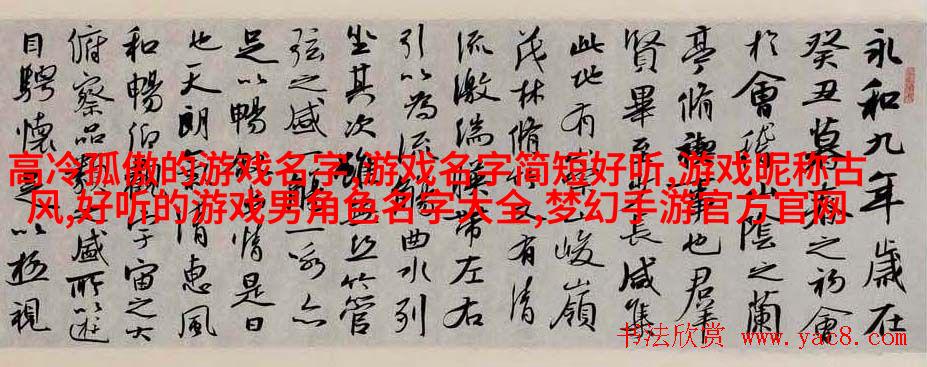 永和九年歲在
癸丑暮之初會
於會稽山陰之蘭
亭脩禊也群
賢畢至長咸集
此地有山峻嶺
茂林脩有清
流激湍帶左右
引以為流觴曲水列
坐其次竹管
弦之盛一詠亦
足以暢情是日
也天朗氣清惠風
和暢仰觀宇宙之大
俯察品類盛所以遊
目騁懷足以極視
高冷孤傲的游戏名字,游戏名字简短好听,游戏昵称古
风,好听的游戏男角色名字大全,梦幻手游官方官网
书法欣赏 www.yac8.com